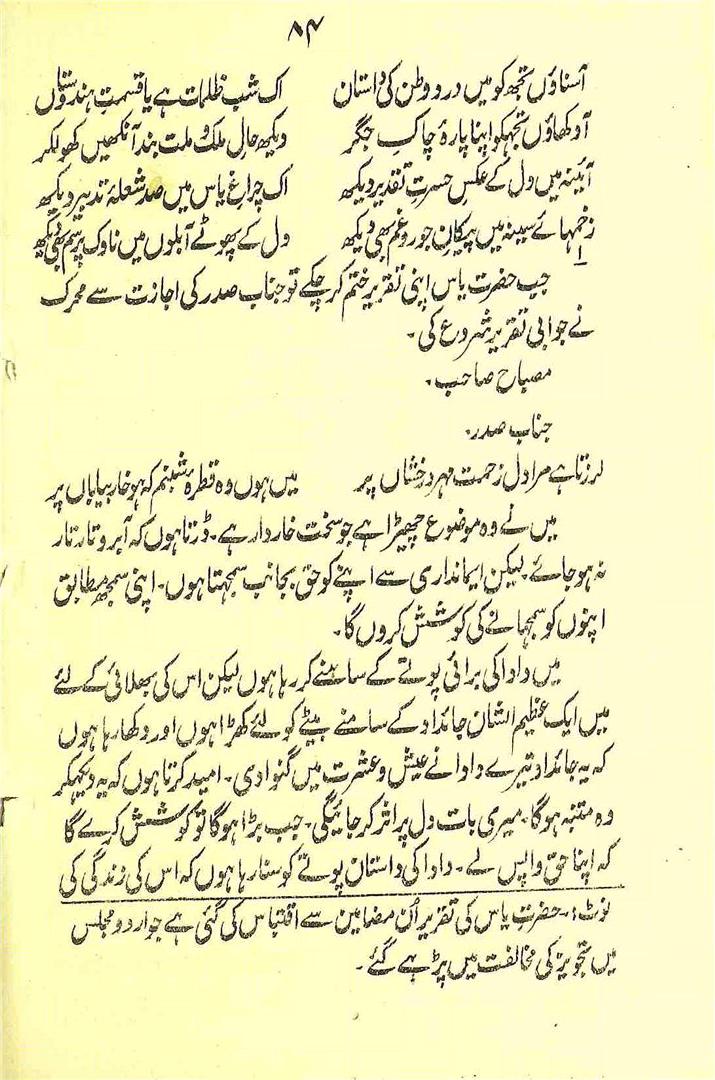 ۸۴
آ سناؤں تجھ کو میں درد وطن کی داستان اک شب ظلمات ہے یا قسمتِ ہندوستاں
آ دکھاؤں تجھکو اپنا پارۂ چاکِ جگر دیکھ حالِ ملک و ملت بند آنکھیں کھولکر
آئینہ میں دل کے عکسِ حسرتِ تقدیر دیکھ اک چراغِ یاس میں صد شعلۂ تدبیر دیکھ
زخمہائے سینہ میں پیکانِ جور و غم بھی دیکھ دل کے پھوٹے آبلوں میں ناوک پرسم بھی دیکھ
جب حضرت یاس اپنی تقریر ختم کر چکے تو جناب صدر کی اجازت سے محرک
نے جوابی تقریر شروع کی۔
مصباح صاحب۔
جناب صدر۔
لرزتا ہے مرا دل زحمت مہر درخشاں پر میں ہوں وہ قطرہ شبنم کہ ہو خار بیاباں پر
میں نے وہ موضوع چھیڑا ہے جو سخت خاردار ہے۔ ڈرتا ہوں کہ آبرو تار تار
نہ ہو جائے۔ لیکن ایمانداری سے اپنے کو حق بجانب سمجھتا ہوں۔ اپنی سمجھ مطابق
اپنوں کو سمجھانے کی کوشش کروں گا۔
میں دادا کی برائی پوتے کے سامنے کر رہا ہوں لیکن اس کی بھلائی کے لئے
میں ایک عظیم الشان جائداد کے سامنے بیٹے کو لئے کھڑا ہوں اور دکھا رہا ہوں
کہ یہ جائداد تیرے دادا نے عیش و عشرت میں گنوا دی۔ امید کرتا ہوں کہ یہ دیکھکر
وہ متنبہ ہوگا۔ میری بات دل پر اثر کر جائیگی۔ جب بڑا ہوگا تو کوشش کرے گا
کہ اپنا حق واپس لے۔ دادا کی داستان پوتے کو سنا رہا ہوں کہ اس کی زندگی کی
نوٹ:۔ حضرت یاس کی تقریر اُن مضامین سے اقتباس کی گئی ہے جو اردو مجلس
میں تجویز کی مخالفت میں پڑھے گئے۔